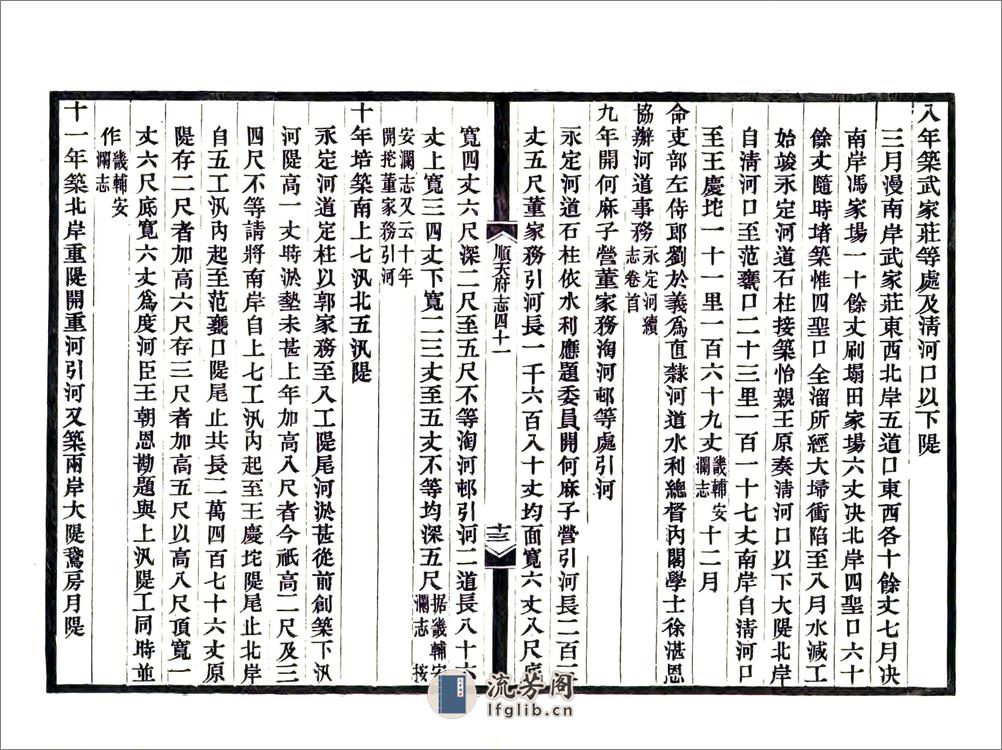 八年築武家莊等處及淸河口以下隄
三月漫南岸武家莊東西北岸五道口東西各十餘丈七月决
南岸馮家場一十餘丈刷塌田家場六丈决北岸四聖口六十
餘丈隨時堵築惟四聖口全溜所經大埽衝陷至入月水減工
始竣永定河道石柱接築怡親王原奏淸河口以下大隄北岸
自淸河口至范甕口二十三里一百一十七丈南岸自淸河口
至王慶坨一十一里一百六十九丈畿輔安瀾志十二月
命吏部左侍郎劉於義爲直隸河道水利總督內閣學士徐湛恩
協辦河道事務永定河續志卷首
九年開何麻子營董家務淘河邨等處引河
永定河道石柱依水利應題委員開何麻子營引河長二百二
丈五尺董家務引河長一千六百入十丈均面寬六丈入尺底
順天府志四十一
十三
寬四丈六尺深二尺至五尺不等淘河邨引河二道長八十六
丈上寬三四丈下寬二三丈至五丈不等均深五尺据畿輔安瀾志 按
安瀾志又云十年開挖董家務引河
十年培築南上七汛北五汛隄
永定河道定柱以郭家務至入工隄尾河淤甚從前創築下汛
河隄高一丈時淤墊未甚上年加高入尺者今祇高二尺及三
四尺不等請將南岸自上七工汛內起至王慶坨隄尾止北岸
自五工汛內起至范甕口隄尾止共長二萬四百七十六丈原
隄存二尺者加高六尺存三尺者加高五尺以高八尺頂寬一
丈六尺底寬六丈爲度河臣王朝恩勘題與上汛隄工同時並
作畿輔安瀾志
十一年築北岸重隄開重河引河又築兩岸大隄鵞房月隄
流芳阁
lfglib.cn